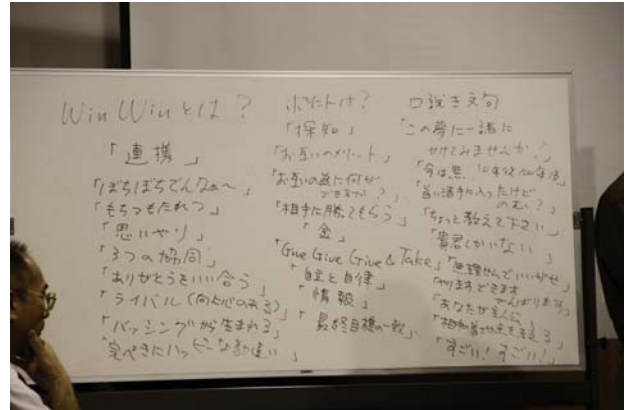 Win Winとは?
「連携」
「ぼちぼちでんなぁ~」
「もちつもたれつ」
「思いやり」
「3つの協同」
「ありがとうをいい合う」
「ライバル(向上心のある)」
「バッシングから生まれる」
「完ぺきに
ポイントは?
「探知」
「お互いのメリット」
「お互いの為に何が
できるか?」
「相手に勝ってもらう」
「金」
「Give Give Give & Take」
「自立と自律」
「情報」
「最終目標の一致」
口説き文句
「この夢に一緒に
かけてみませんか!」
「今は悪
手に入ったけど
のむ?」
「ちょっと教えて下さい」
「貴君しかいない」
「無理せんでいいがぜ」
やります できます
がんばります
「あなたが主人公」
「すごい!すごい!」